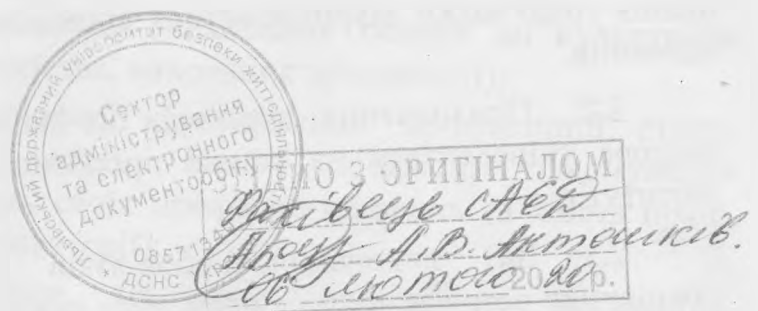 Львівський державний університет безпеки життєдіяльності
* ДСНС
Сектор
адміністрування
та електронного
документообігу
ЗГІДНО З ОРИГІНАЛОМ
Фахівець САЕД
06 лютого 2020 р.